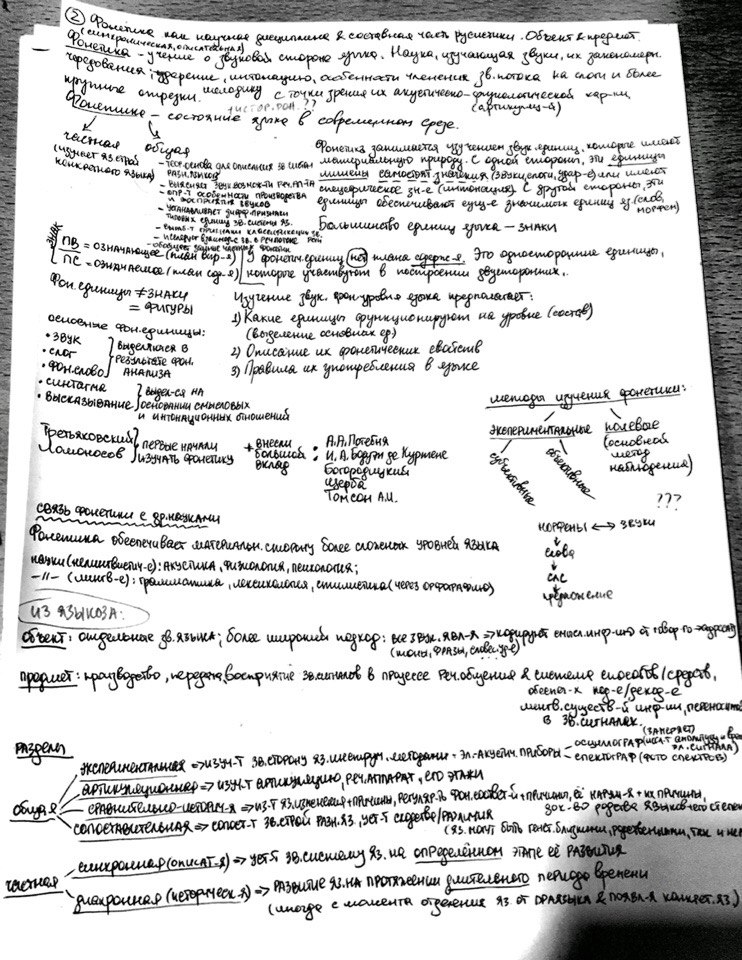 ② Фонетика как научная дисциплина & составная часть русистики. Объект & предмет.
(синхроническая, описательная)
Фонетика – учение о звуковой стороне языка. Наука, изучающая звуки, их закономерн.
чередования, ударение, интонацию, особенности членения зв. потока на слоги и более
крупные отрезки. мелодику с точки зрения их акустическо-физиологической хар-ки
(артикуляц-й)
+ истор. фон. ??
Фонетика – состояние языка в современном срезе.
частная
(изучает яз. строй
конкретного языка)
общая
- теор. основа для описания зв. систем
разн. языков
- выясняет звук. возмож-ти реч. ап-та
- опр-т особенности производства
и восприятия звуков
- устанавливает дифф. признаки
типовых единиц зв. системы яз.
- выяв-т принципы классификации зв.
- исследует взаимод-е зв. в реч. потоке
- обобщает данные частных фонетик
Фонетика занимается изучением звук. единиц, которые имеют
материальную природу. С одной стороны, эти единицы
лишены самостоят. значения (звуки, слоги, удар-е) или имеют
специфическое зн-е (интонация). С другой стороны, эти
единицы обеспечивают сущ-е значимых единиц яз. (слов,
морфем)
Большинство единиц языка – знаки
ПВ = означающее (план выр-я)
ПС = означаемое (план сод-я)
У фонетич. единиц нет плана содерж-я. Это односторонние единицы,
которые участвуют в построении двусторонних.
Фон. единицы ≠ знаки
= фигуры
Изучение звук. фон. уровня языка предполагает:
1) Какие единицы функционируют на уровне (состав)
(выделение основных ед)
2) Описание их фонетических свойств
3) Правила их употребления в языке
основные фон. единицы:
• звук
• слог
• фон. слово
выделяются в
результате фон.
анализа
• синтагма
• высказывание
выдел-ся на
основании смысловых
и интонационных отношений
методы изучения фонетики:
экспериментальные
субъективные
объективные
полевые
(основной
метод
наблюдения)
Третьяковский
Ломоносов
первые начали
изучать фонетику
+ внесли
большой
вклад
: А.А. Потебня
И. А. Бодуэн де Куртене
Богородицкий
Щерба
Томсон А.И.
???
морфемы ↔ звуки
слова
с/с
предложение
связь фонетики с др. науками
Фонетика обеспечивает материальн. сторону более сложных уровней языка
науки (нелингвистич-е): акустика, физиология, психология;
–//– (лингв-е): грамматика, лексикология, стилистика (через орфографию)
из языкозн.
объект: отдельные зв. языка; более широкий подход: все звук. явл-я ⇒ кодируют смысл. инф-ию от говор-го → адресату
(тоны, фразы, словес. уд-е)
предмет: производство, передача, восприятие зв. сигналов в процессе реч. общения & система способов/средств,
обеспеч-х код-е/декод-е
лингв. существ-й инф-ии, переносимой
в зв. сигналах.
разделы
общая
экспериментальная ⇒ изуч-т зв. сторону яз. инструм. методами + эл.-акустич. приборы
(замеряет)
осциллограф (исс-т амплитуду и врем.
эл. сигнала)
спектограф (фото спектров)
артикуляционнная ⇒ изуч-т артикуляцию, реч. аппарат, его этажи
сравнительно-историч-я ⇒ из-т яз. изменения + причины, регуляр-ть фон. соответ-й + причины, её наруш-я + их причины,
док-во родства языков & его степень
сопоставительная ⇒ сопост-т зв. строй разн. яз., уст-т сходства/различия
(яз. могут быть генет. близкими, родственными, так и нет)
частная
синхронная (описат-я) ⇒ уст-т зв. систему яз. на определённом этапе её развития
диахронная (историческ-я) ⇒ развитие яз. на протяжении длительного периода времени
(иногда с момента отделения яз. от праязыка & появл-я конкрет. яз.)